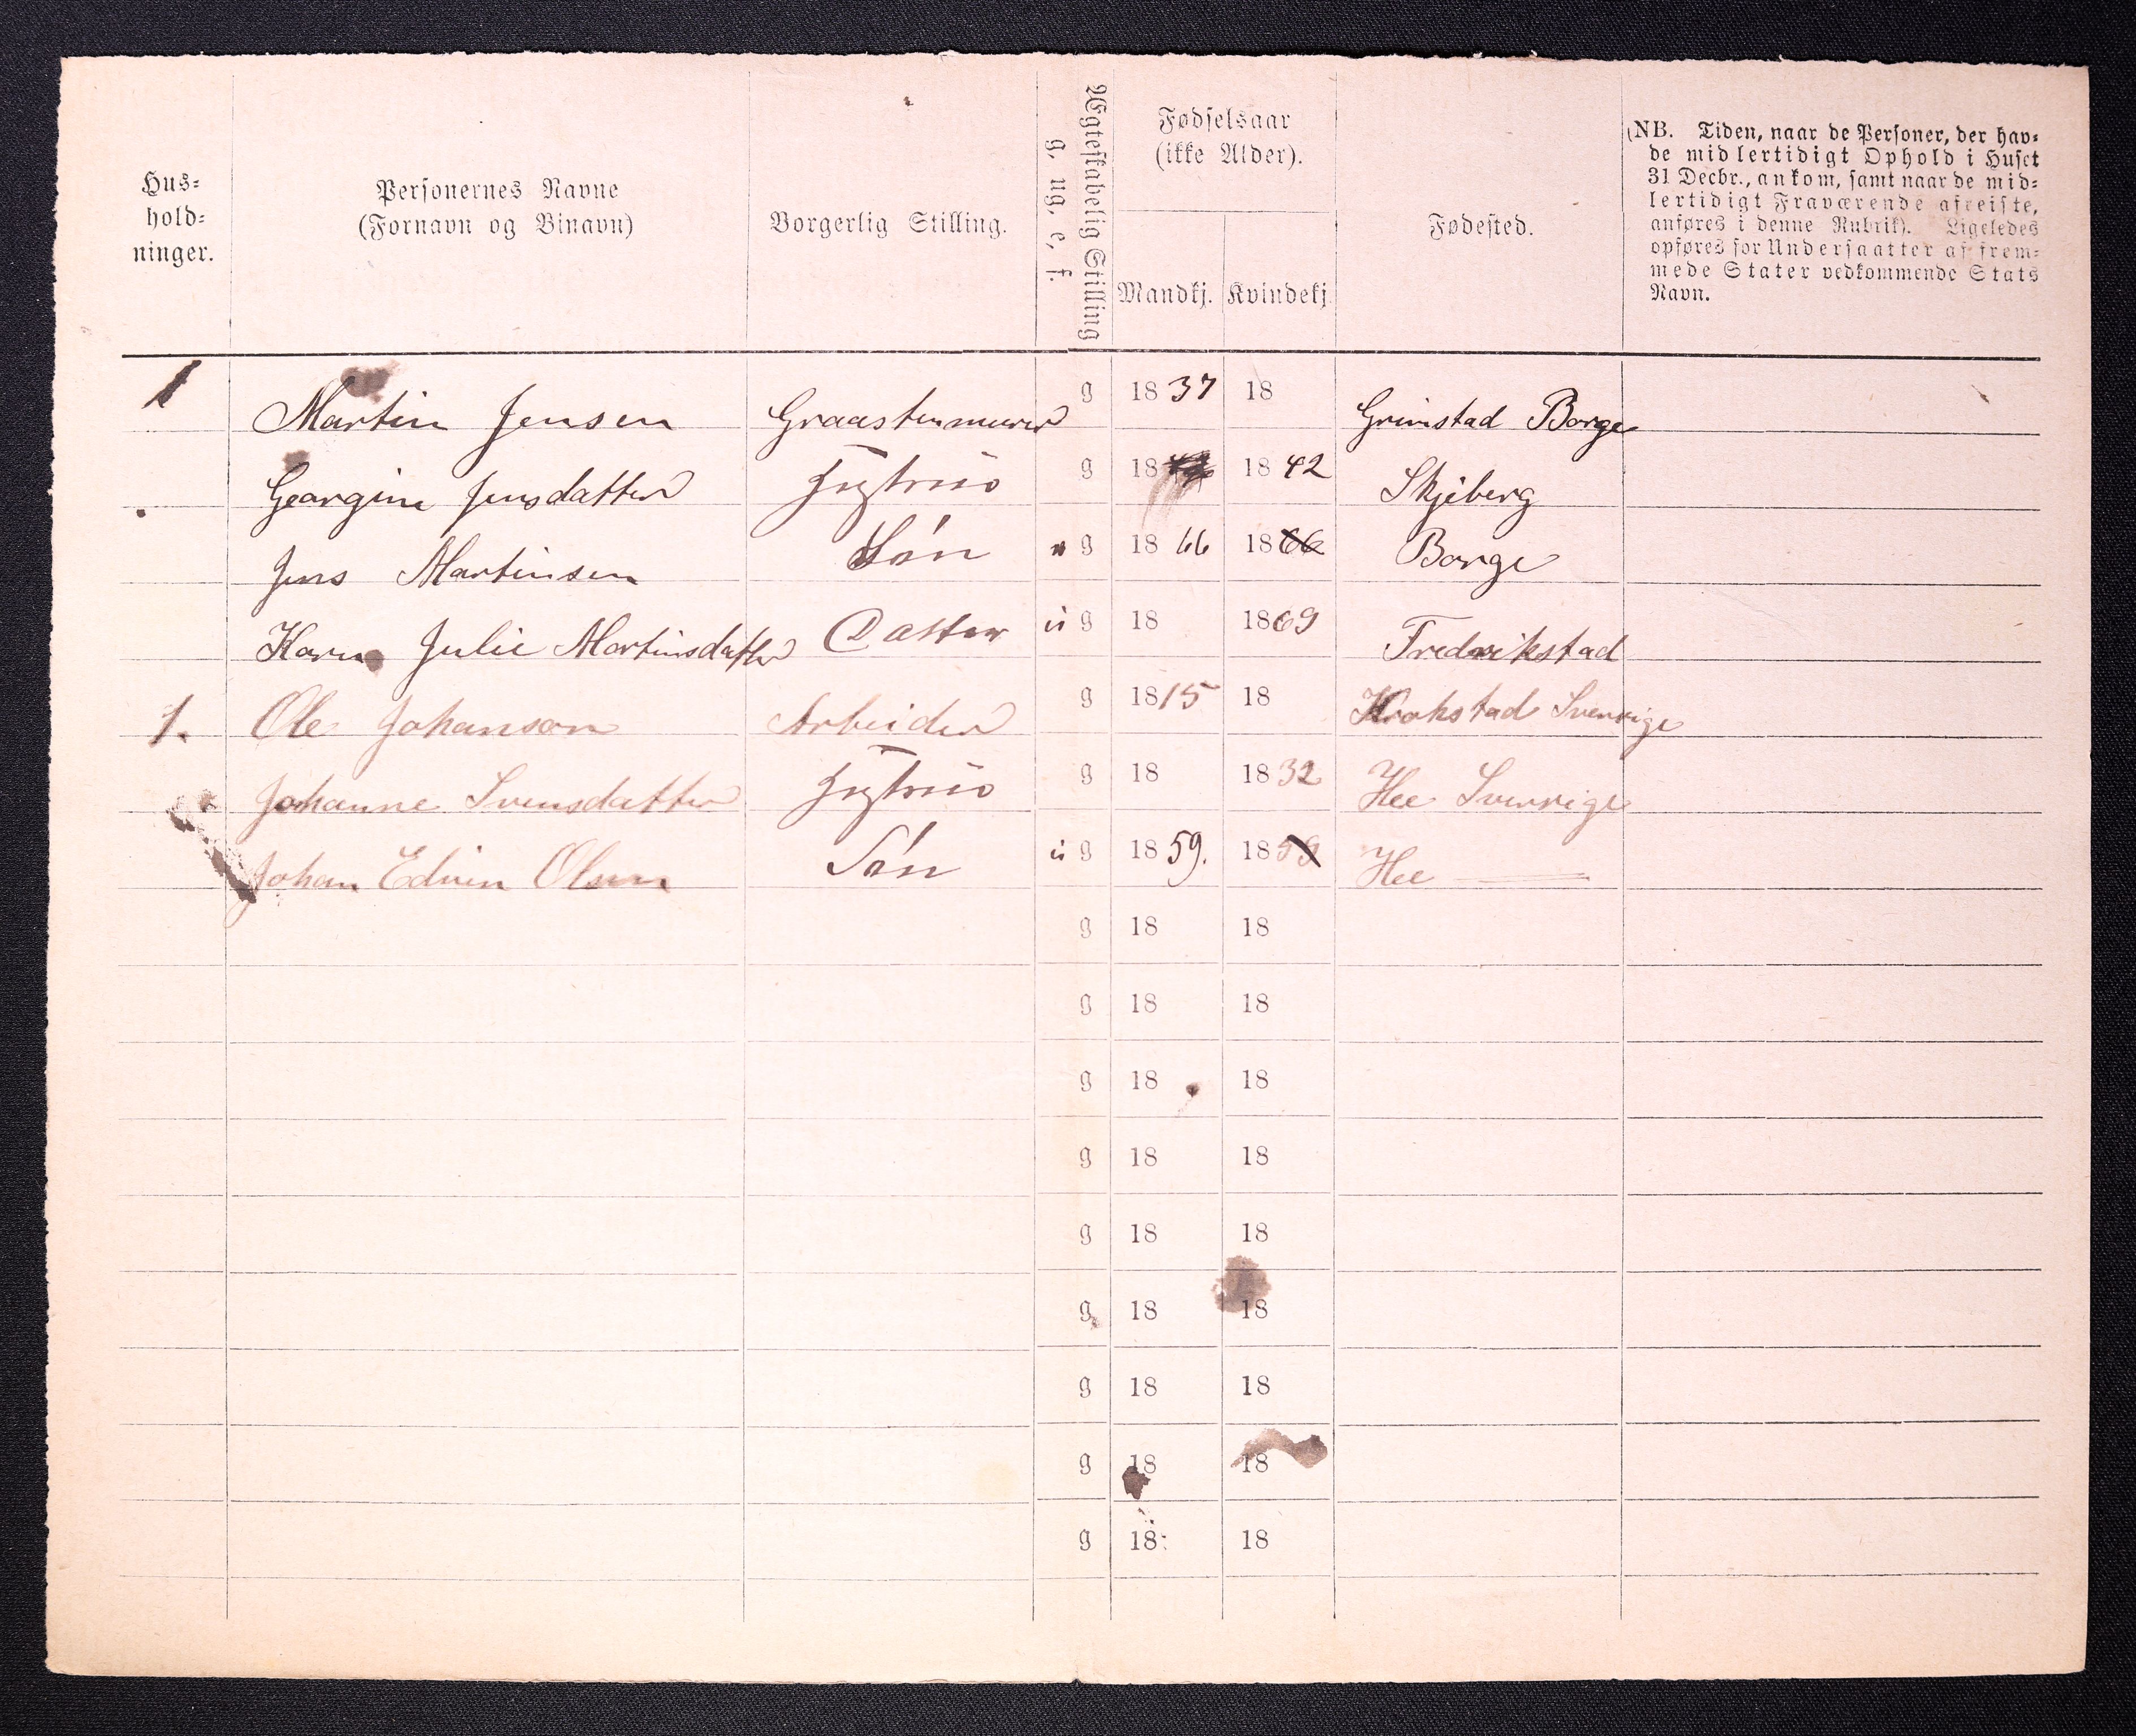 Hus-
hold-
ninger.
Personernes Navne
(Fornavn og Binavn)
Borgerlig Stilling.
Ægteskabelig Stilling
g, ug, e, f.
Fødselsaar
(ikke Alder).
Mandkj. Kvindekj.
Fødested.
(NB. Tiden, naar de Personer, der hav-
de midlertidigt Ophold i Huset
31 Decbr., ankom, samt naar de mid-
lertidigt Fraværende afreiste,
anføres i denne Rubrik). Ligeledes
opføres for Undersaatter af frem-
mede Stater vedkommende Stats
Navn.
1 Martin Jensen Graastenmurer g 1837 18 Grimstad Borge
Georgine Jensdatter g 18 1842 Skjeberg
Jens Martinsen Søn g 1866 1866 Borge
Karen Julie Martinsdatter Datter u g 18 1869 Fredrikstad
1. Ole Johanson Arbeider g 1815 18 Krokstad Sverrige
Johanne Svensdatter g 18 1832 Hee Sverrige
Johan Edvin Olsen Søn u g 1859. 1859 Hee
g 18 18
g 18 18
g 18 18
g 18 18
g 18 18
g 18 18
g 18 18
g 18 18
g 18 18